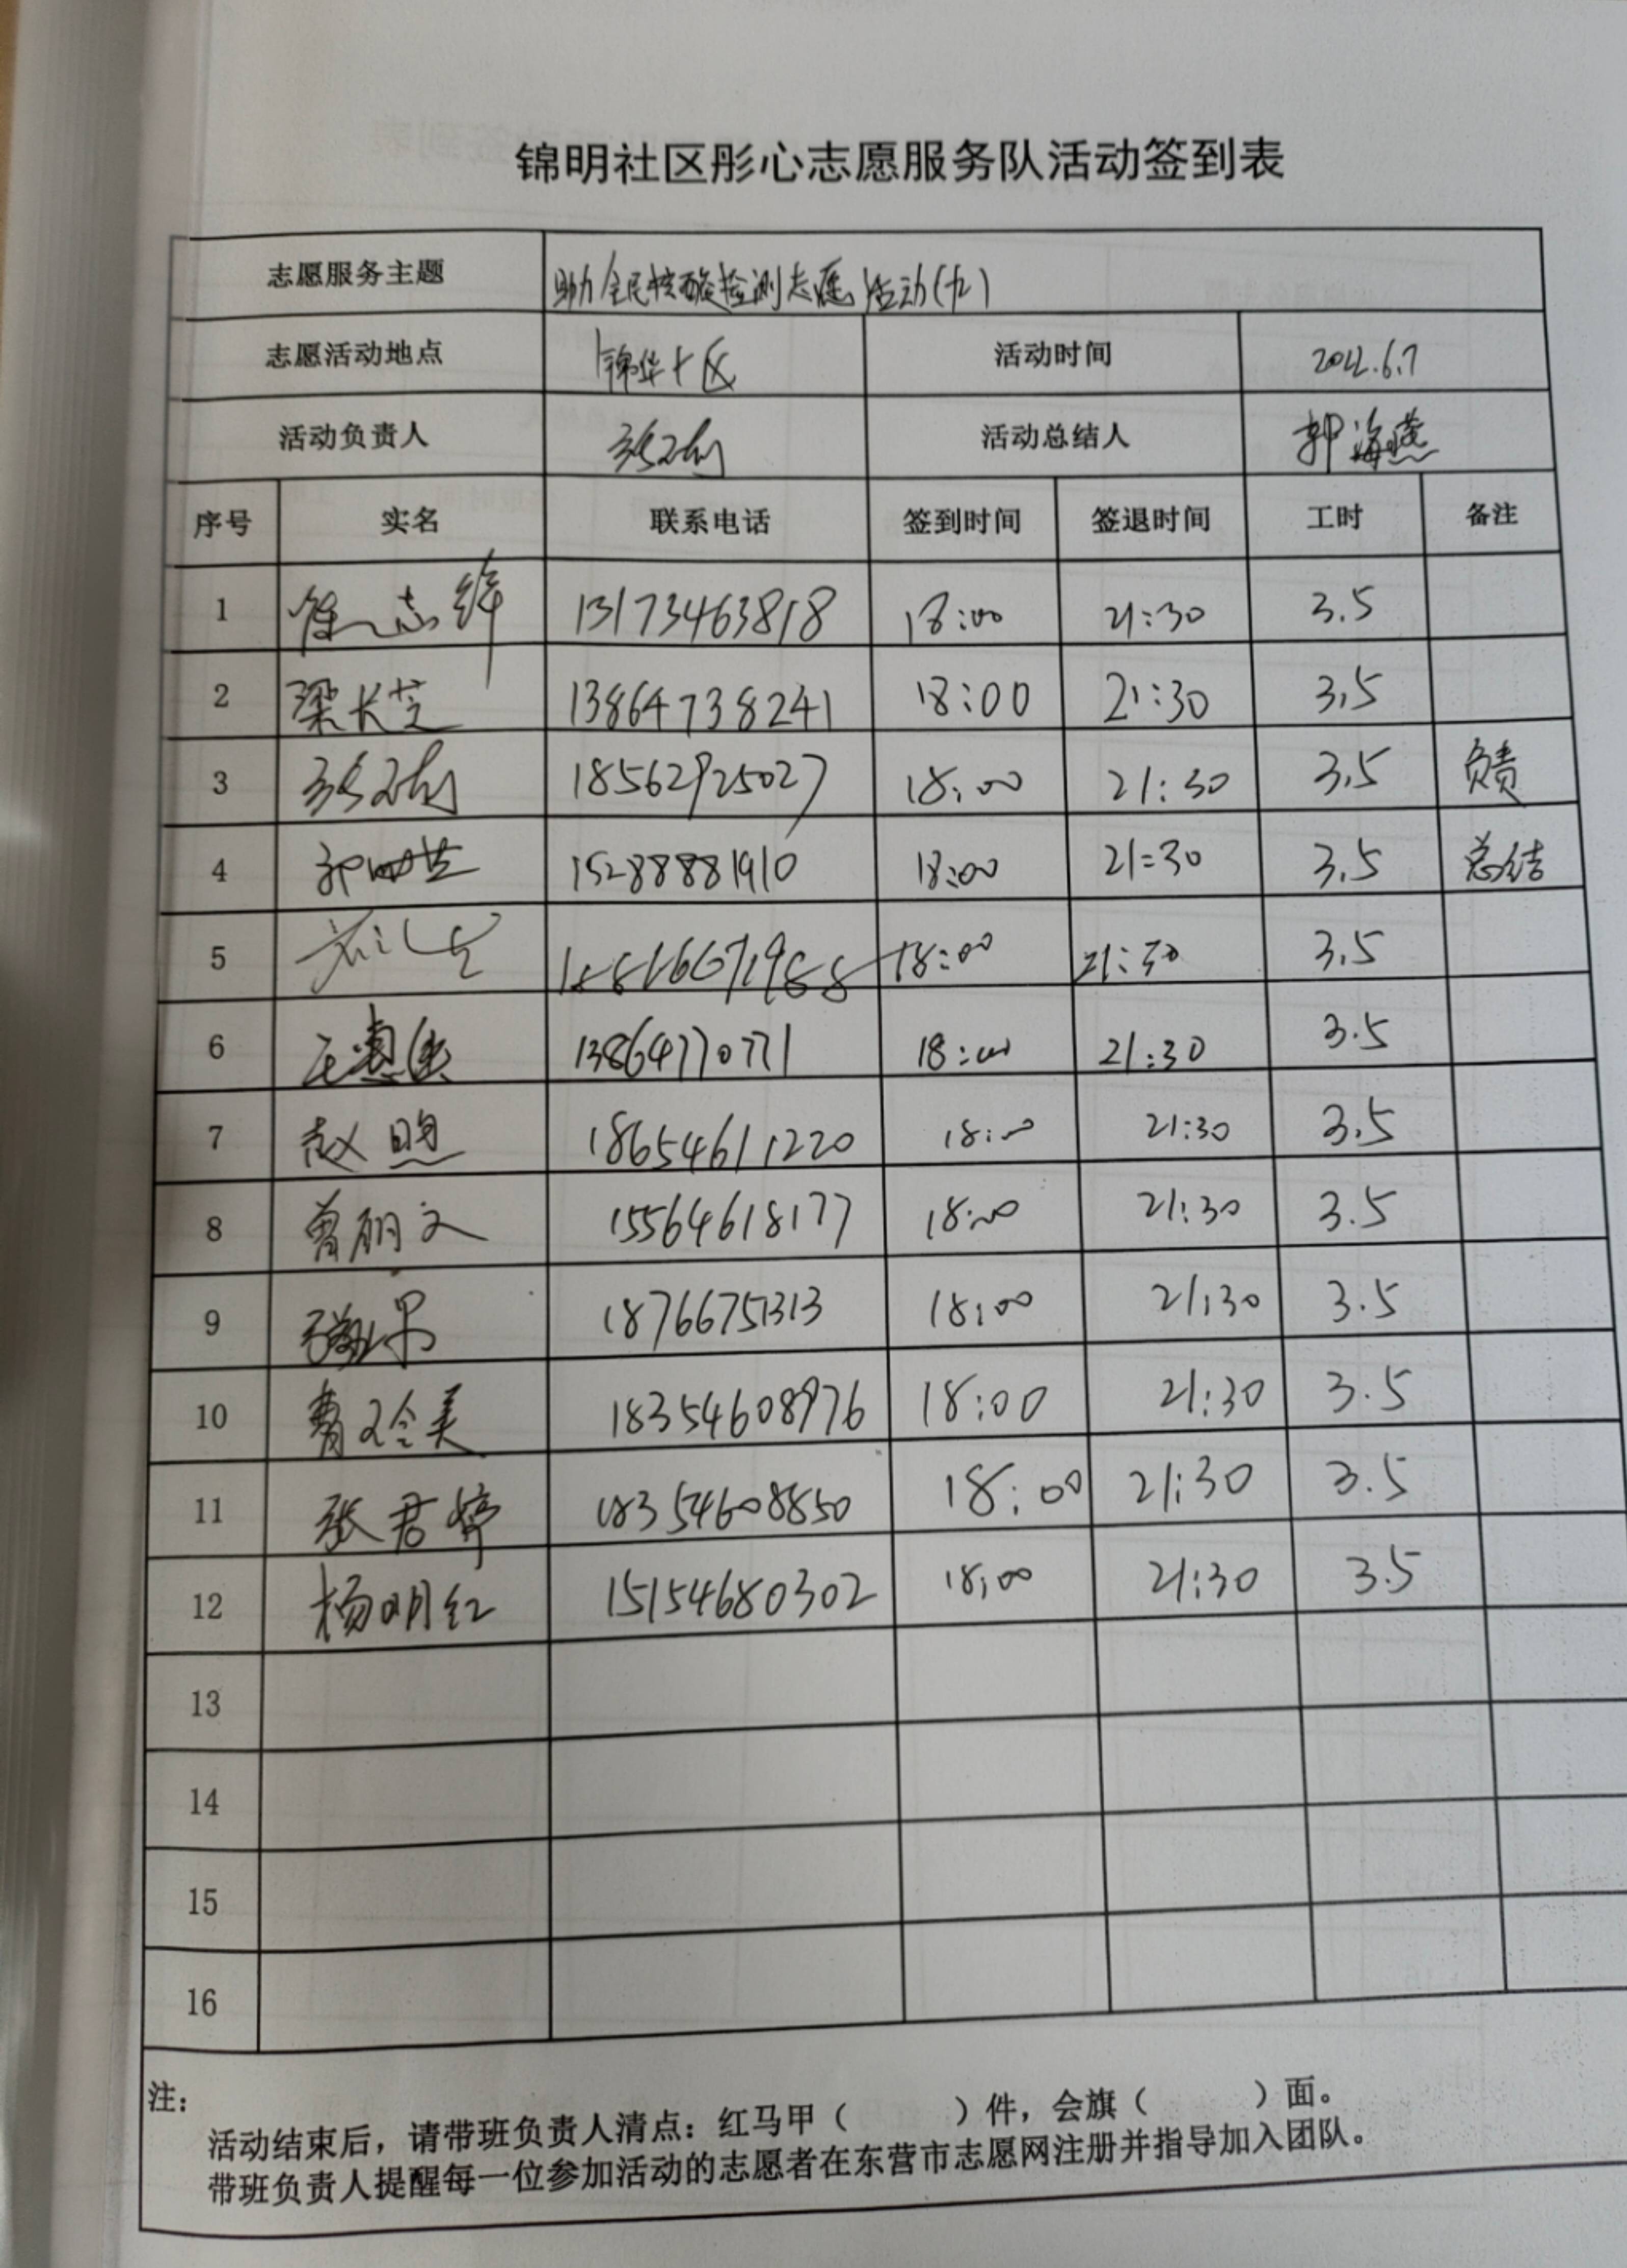 锦明社区彤心志愿服务队活动签到表
志愿服务主题 助力全民核酸检测志愿活动(九)
志愿活动地点 锦华十区 活动时间 2022.6.7
活动负责人 活动总结人 郭海燕
序号 实名 联系电话 签到时间 签退时间 工时 备注
1 13173463818 18:00 21:30 3.5
2 梁长芝 13864738241 18:00 21:30 3.5
3 18562925027 18:00 21:30 3.5 负责
4 15288881910 18:00 21:30 3.5 总结
5 18:00 21:30 3.5
6 13864770771 18:00 21:30 3.5
7 赵照 18654611220 18:00 21:30 3.5
8 曾丽文 15564618177 18:00 21:30 3.5
9 18766751313 18:00 21:30 3.5
10 18354608976 18:00 21:30 3.5
11 张君婷 18354608850 18:00 21:30 3.5
12 杨明红 15154680302 18:00 21:30 3.5
13
14
15
16
注：
活动结束后，请带班负责人清点：红马甲（ ）件，会旗（ ）面。
带班负责人提醒每一位参加活动的志愿者在东营市志愿网注册并指导加入团队。